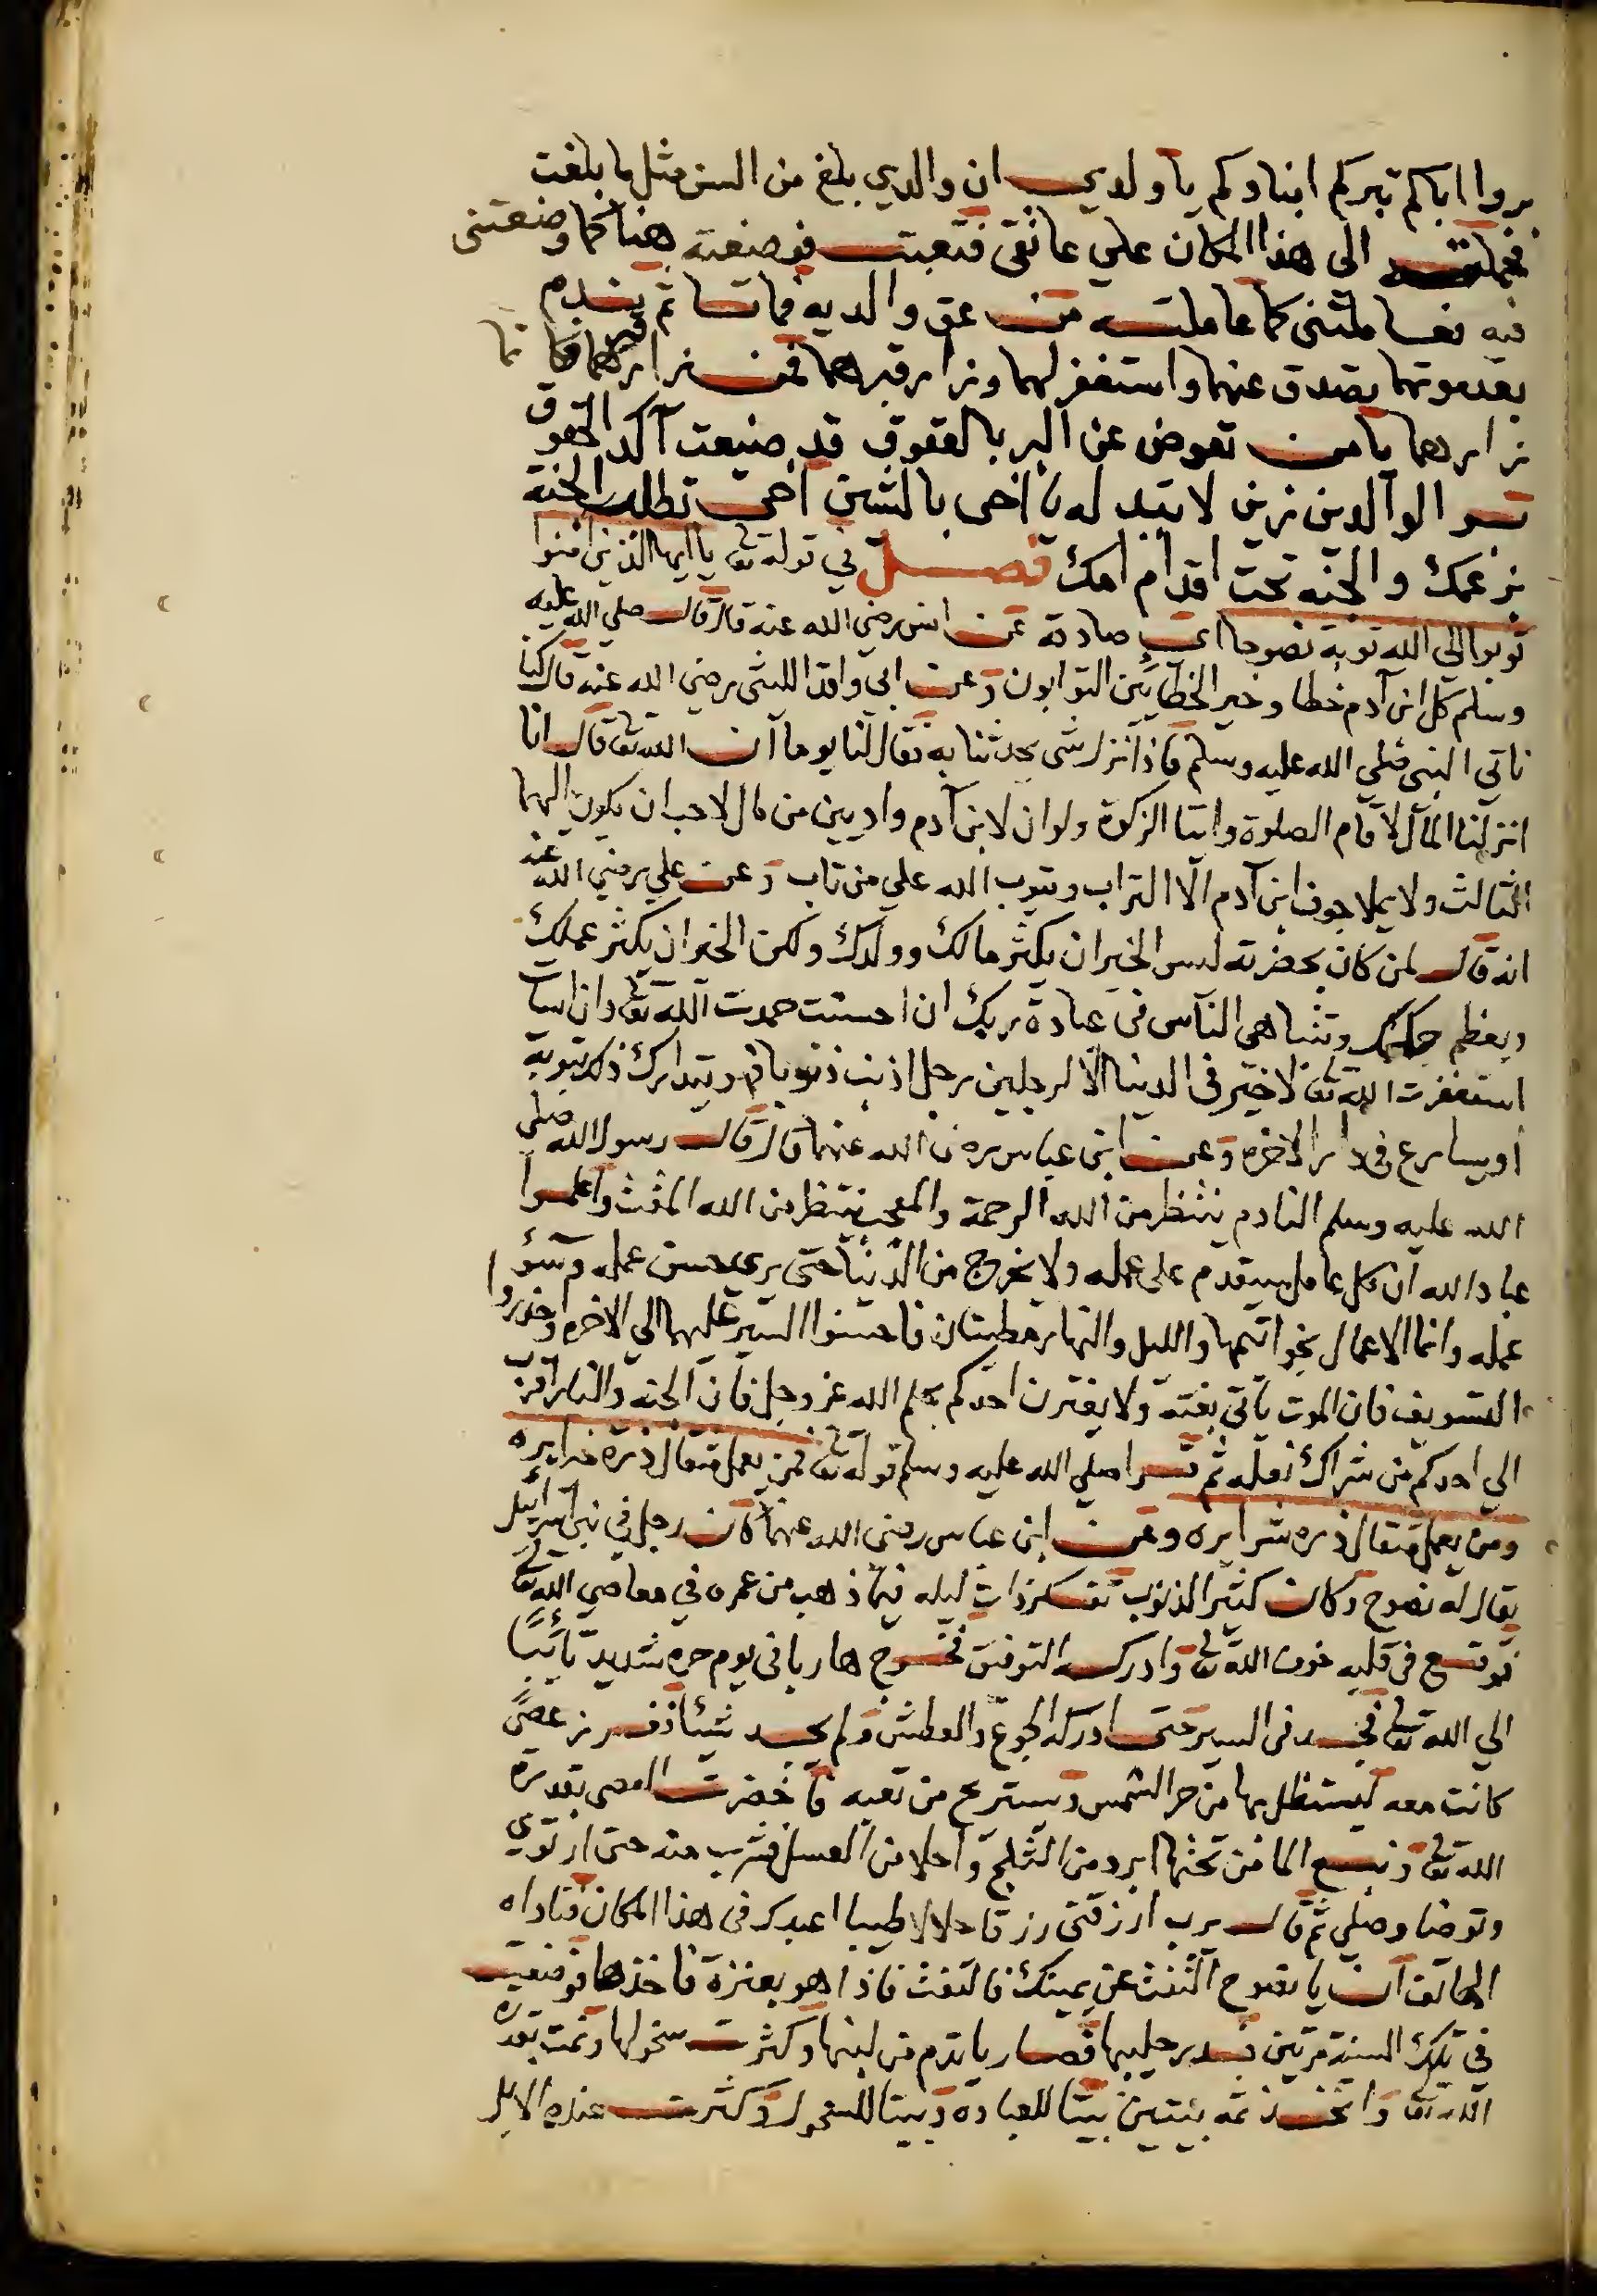 بروا اباكم تبركم ابناوكم يا ولدي ان والدي بلغ من السن مثل ما بلغت
فحملته الى هذا المكان علي عاتقى فتعبت فوضعته هنا كما وضعتنى
فيه فعاملتنى كما عاملته من عق والديه فماتا ثم يندم
بعد موتهما يصدق عنهما واستغفر لهما وزار قبرهما فمن زار قبرهما فكانما
زارهما يا من تعوض عن البر بالعقوق قد ضيعت آكد الحقوق
بر الوالدين زين لا تبدله يا اخى بالشين اخى تطلب الجنة
بزعمك والجنه تحت اقدام امك فصل في قوله تع يا ايها الذين امنوا
توبوا الي الله توبة نصوحا اى صادقة عن انس رضي الله عنه قال قال صلي الله عليه
وسلم كل ابن آدم خطا وخير الخطايين التوابون وعن ابي واقد الليثى رضي الله عنه قال كنا
ناتي النبى صلي الله عليه وسلم فاذا نزل شى يحدثنا به فقال لنا يوما ان الله تع قال انا
انزلنا المال لاقام الصلوة وايتا الزكوة ولو ان لابن آدم واديين من مال لاحب ان يكون اليهما
الثالث ولا يملا جوف ابن آدم الا التراب ويتوب الله علي من تاب وعن علي رضي الله عنه
انه قال لمن كان بحضرته ليس الخير ان يكثر مالك وولدك ولكن الخير ان يكثر عملك
ويعظم حلمك وتتباهى الناس فى عبادة ربك ان احسنت حمدت الله تع وان اسات
استغفرت الله تع لا خير فى الدنيا الا لرجلين رجل اذنب ذنوبا فهو يتدارك ذلك بتوبة
او يسارع فى دار الاخره وعن ابن عباس رضى الله عنهما قال قال رسول الله صلي
الله عليه وسلم النادم ينتظر من الله الرحمة والمعجب ينتظر من الله المقت واعلموا
عباد الله ان كل عامل سيقدم على عمله ولا يخرج من الدنيا حتى يرى حسن عمله وسوء
عمله وانما الاعمال بخواتمها والليل والنهار مطيتان فاحسنوا السير عليهما الي الاخره واحذروا
التسويف فان الموت ياتى بغتة ولا يغترن احدكم بحلم الله عز وجل فان الجنه والنار اقرب
الي احدكم من شراك نعله ثم قرا صلي الله عليه وسلم قوله تع فمن يعمل مثقال ذرة خيرا يره
ومن يعمل مثقال ذره شرا يره وعن ابن عباس رضى الله عنهما كان رجل في بنى اسرائيل
يقال له نصوح وكان كثير الذنوب تفكر ذات ليله فيما ذهب من عمره في معاصي الله تع
فوقع فى قلبه خوف الله تع وادركه التوفيق فخرج هاربا فى يوم حره شديد تائبا
الي الله تع فجد فى السير حتى ادركه الجوع والعطش ولم يجد شيئا فغرز عصى
كانت معه ليستظل بها من حر الشمس ويستريح من تعبه فاخضرت العصى بقدرة
الله تع ونبع الما من تحتها ابرد من الثلج واحلا من العسل فشرب منه حتى ارتوي
وتوضا وصلي ثم قال رب ارزقنى رزقا حلالا طيبا اعبدك فى هذا المكان فناداه
الهاتف ان يا نصوح التفت عن يمينك فالتفت فاذا هو بعنزة فاخذها فوضعت
في تلك السنة مرتين فدر حليبها فصار ياتدم من لبنها وكثرت سخولها ونمت بقدرة
الله تع واتخذ ثمه بيتين بيتا للعباده وبيتا للسخول وكثرت عنده الابل